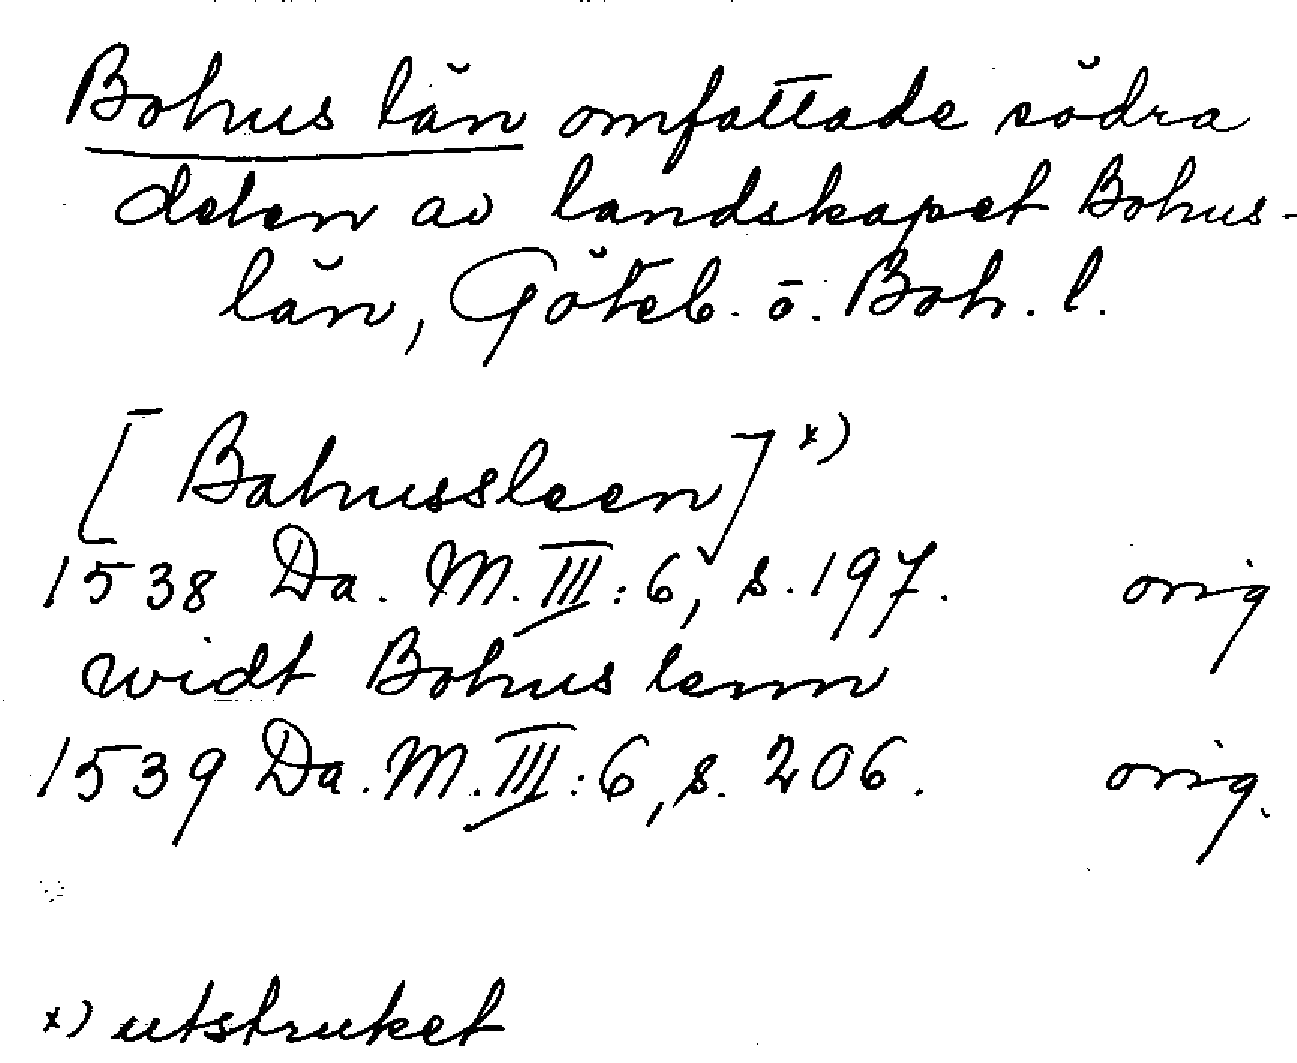 Bohus län omfattade södra
delen av landskapet Bohus-
län, Göteb. o. Boh. l.
[Bahussleen] x)
1538 Da. M. III: 6, s. 197. orig
widt Bohus lenn
1539 Da. M. III: 6, s. 206. orig.
x) utstruket